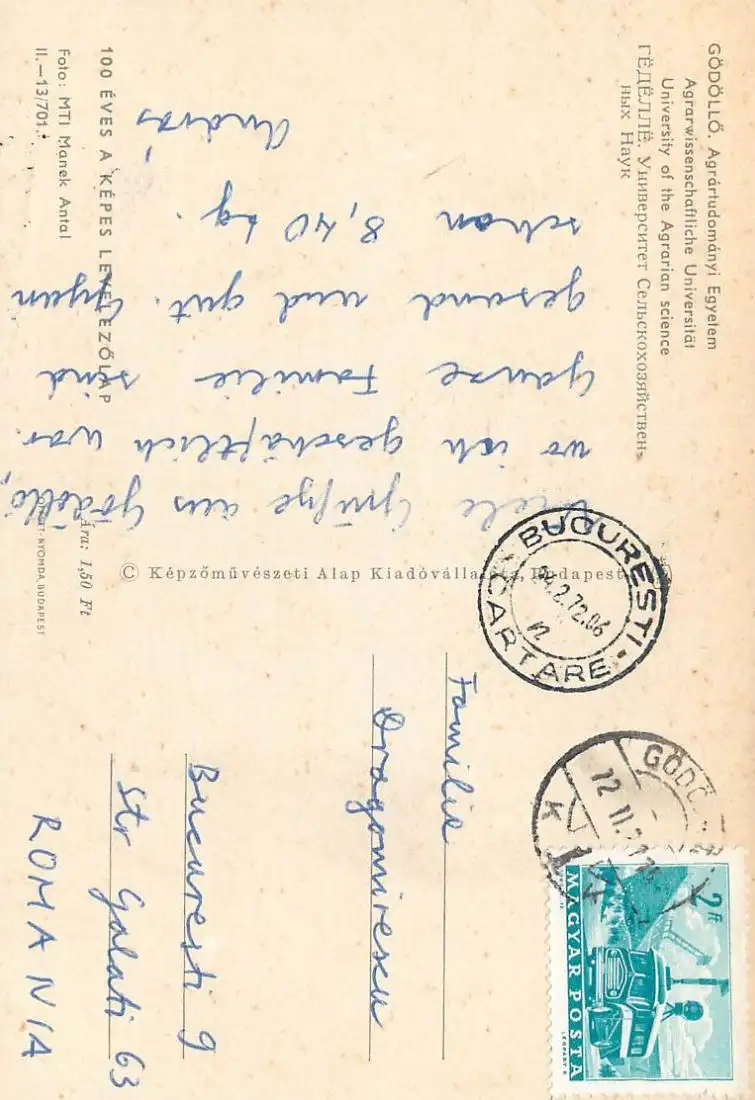 GÖDÖLLŐ. Agrártudományi Egyetem
Agrarwissenschaftliche Universität
University of the Agrarian science
ГЁДЁЛЛЁ. Университет Сельскохозяйствен-
ных Наук
Viele Grüße aus Gödöllő,
wo ich geschäftlich war.
Ganze Familie sind
gesund und gut.
schon 8,40 kg.
András
100 ÉVES A KÉPES LEVELEZŐLAP
Foto: MTI Manek Antal
II.—13/701.
Ára: 1,50 Ft
NYOMDA, BUDAPEST
© Képzőművészeti Alap Kiadóvállalata, Budapest
BUCURESTI
CARTARE
2.72.06
GÖDÖ
72 II.
K
2 Ft
MAGYAR POSTA
LÉGRÁDY S.
Familie
Dragomirescu
Bucuresti 9
Str Galati 63
ROMANIA